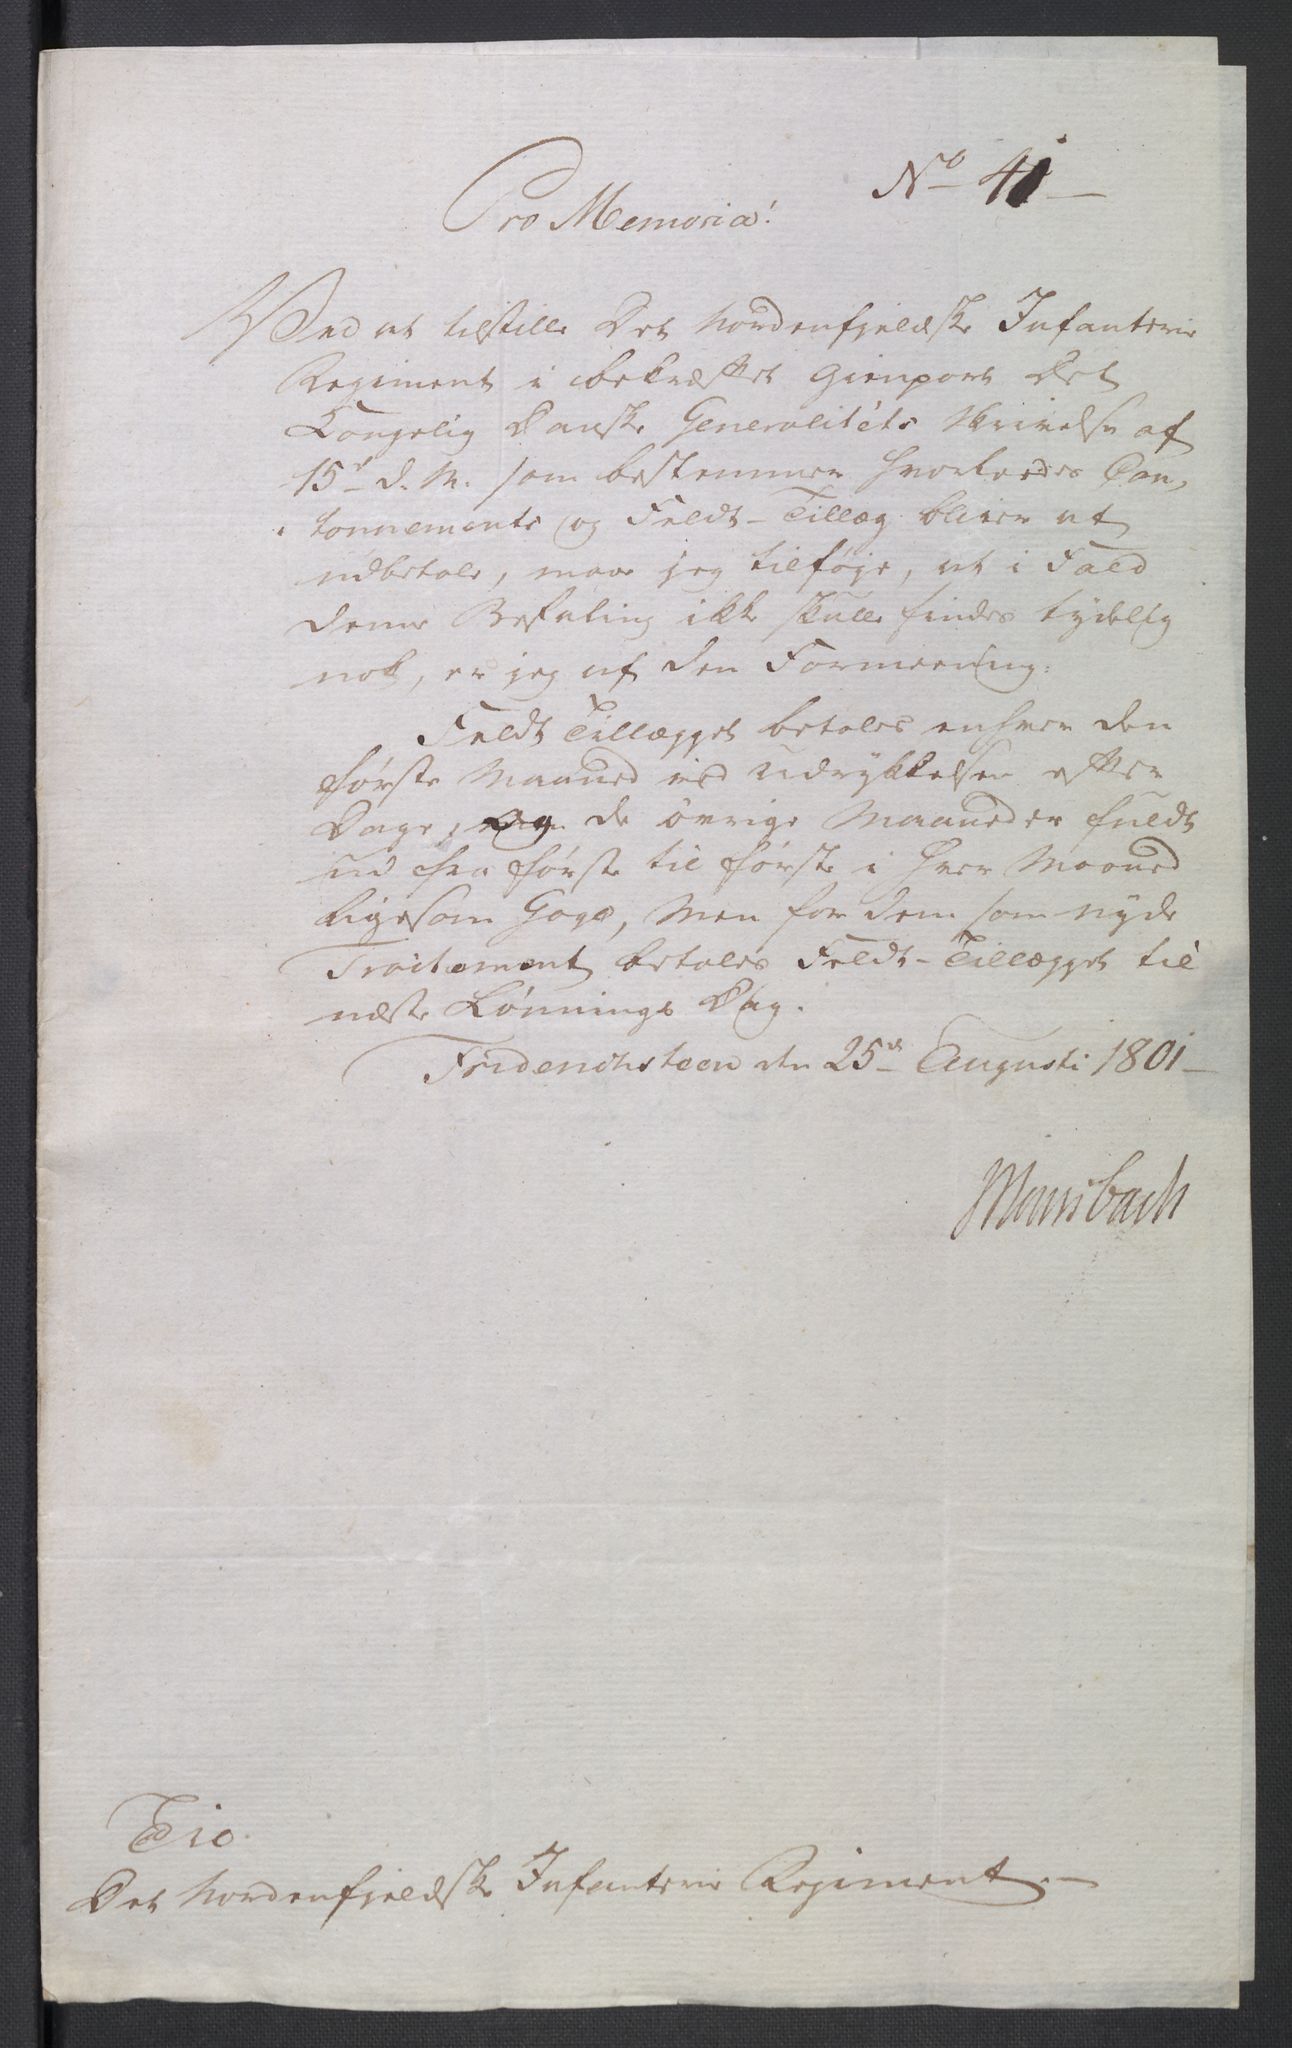 No 41
Pro Memoria!
Ved at tilstille Det Nordenfjeldske Infanterie
Regiment i bekræftet Gienpart Det
Kongelig Danske Generalitéts Skrivelse af
15d d. M. som bestemmer hvorledes Can,
tonnements og Feldt-Tillæg bliver at
udbetale, maae jeg tilføje, at i Fald
denne Befaling ikke skulle findes tydelig
nok, er jeg af den Formeening:
Feldt Tillægget betales enhver den
første Maaned ved Udrykkelsen efter
Dage, og de övrige Maaneder fuldt
ud fra første til første i hver Maaned
ligesom Gage, Men for dem som nyde
Traitement betales Feldt-Tillægget til
næste Lønnings Dag.
Friderichsteen den 25d Augusti 1801
Mansbach
Til
Det Nordenfjeldske Infanterie Regiment.